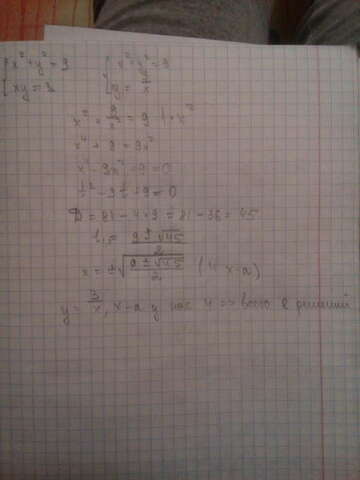 { x² + y² = 9
xy = 3
{ x² + y² = 9
y = 3/x
x² + 9/x² = 9 | · x²
x⁴ + 9 = 9x²
x⁴ - 9x² + 9 = 0
t² - 9t + 9 = 0
D = 81 - 4·9 = 81 - 36 = 45
t₁ = (9 ± √45)/2
x = ±√((9 ± √45)/2) (4 x-а)
y = 3/x, x-а у нас 4 => всего решений